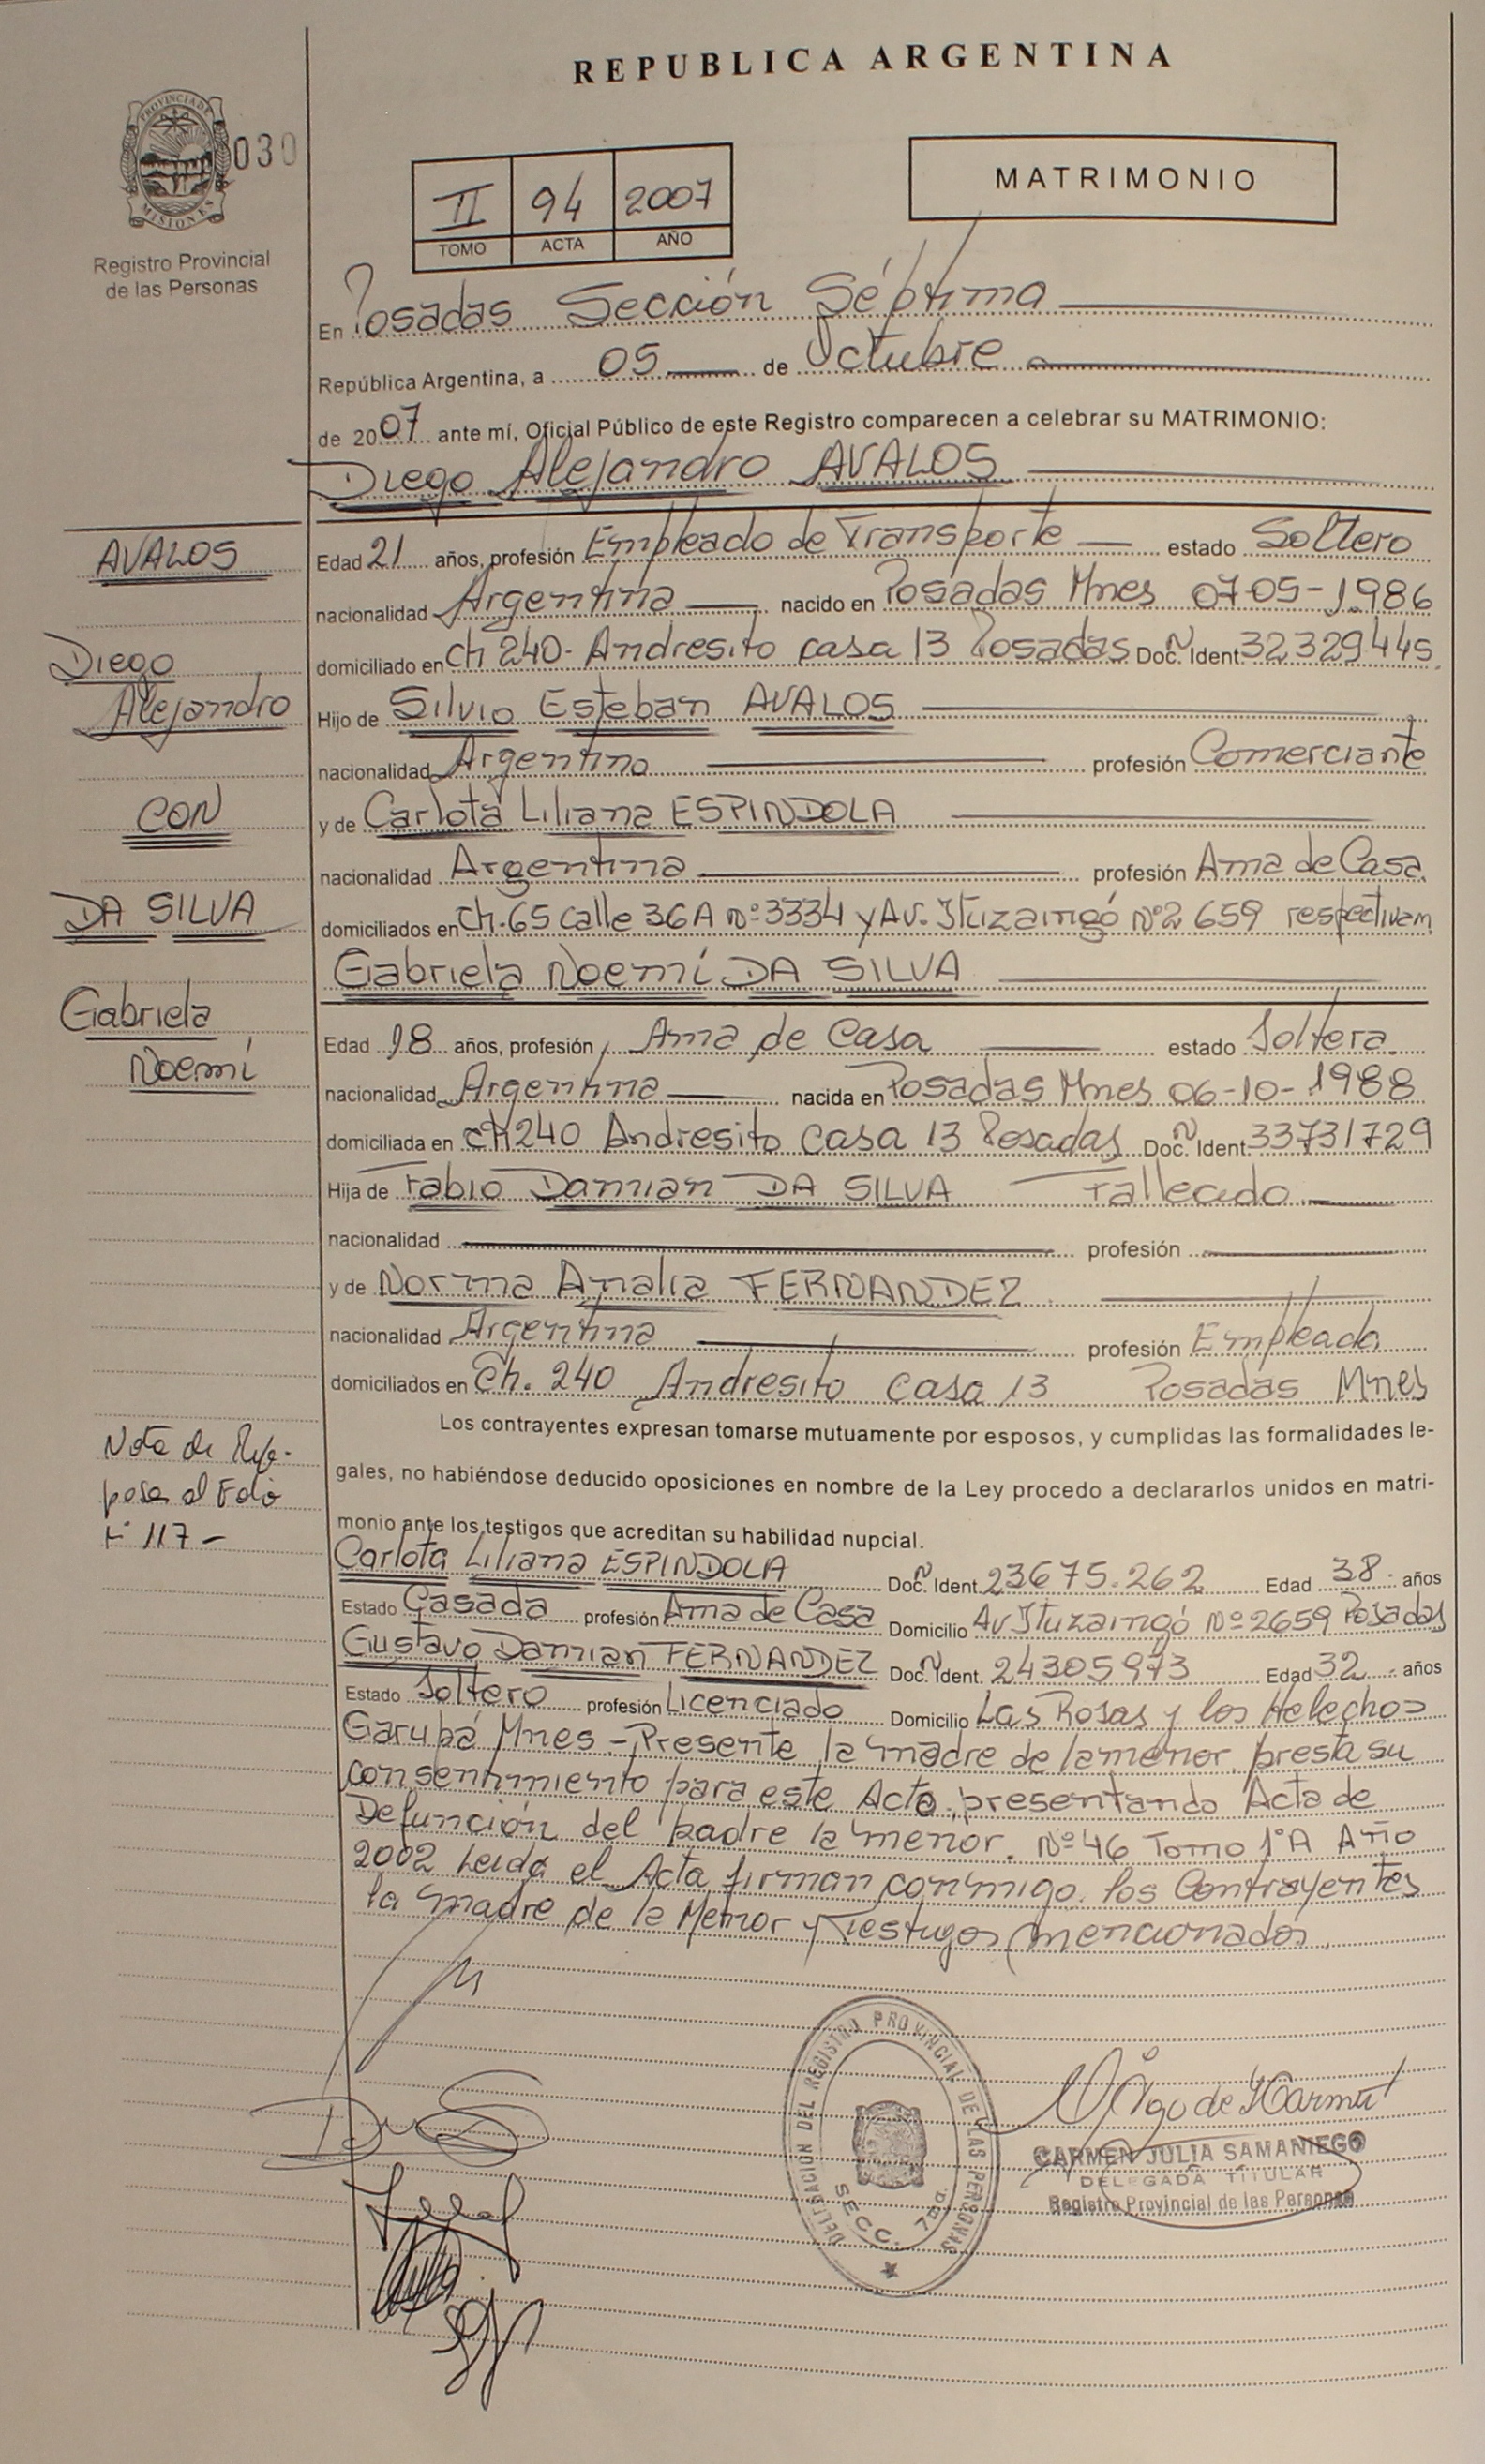 REPUBLICA ARGENTINA
PROVINCIA DE
MISIONES
030
Registro Provincial
de las Personas
II 94 2007
TOMO ACTA AÑO
MATRIMONIO
En Posadas Sección Séptima
República Argentina, a 05 de Octubre
de 2007 ante mí, Oficial Público de este Registro comparecen a celebrar su MATRIMONIO:
Diego Alejandro AVALOS
AVALOS
Diego
Alejandro
CON
DA SILVA
Gabriela
Noemí
Edad 21 años, profesión Empleado de Transporte estado Soltero
nacionalidad Argentina nacido en Posadas Mnes 07-05-1986
domiciliado en Ch 240- Andresito casa 13 Posadas Doc. N Ident. 32329445
Hijo de Silvio Esteban AVALOS
nacionalidad Argentino profesión Comerciante
y de Carlota Liliana ESPINDOLA
nacionalidad Argentina profesión Ama de Casa.
domiciliados en Ch.65 Calle 36A Nº3334 y AV. Ituzaingó Nº2659 respectivam
Gabriela Noemí DA SILVA
Edad 18 años, profesión Ama de Casa estado Soltera.
nacionalidad Argentina nacida en Posadas Mnes 06-10-1988
domiciliada en Ch240 Andresito Casa 13 Posadas Doc. N Ident. 33731729
Hija de Fabio Damian DA SILVA Fallecido
nacionalidad profesión
y de Norma Analia FERNANDEZ
nacionalidad Argentina profesión Empleada
domiciliados en Ch. 240 Andresito Casa 13 Posadas Mnes
Los contrayentes expresan tomarse mutuamente por esposos, y cumplidas las formalidades le-
gales, no habiéndose deducido oposiciones en nombre de la Ley procedo a declararlos unidos en matri-
monio ante los testigos que acreditan su habilidad nupcial.
Nota de Refe-
pasa al Folio
117-
Carlota Liliana ESPINDOLA Doc. N Ident. 23675.262 Edad 38 años
Estado Casada profesión Ama de Casa Domicilio Av Ituzaingó Nº2659 Posadas
Gustavo Damian FERNANDEZ Doc. N Ident. 24305973 Edad 32 años
Estado Soltero profesión Licenciado Domicilio Las Rosas y los Helechos
Garupá Mnes.- Presente la madre de la menor, presta su
consentimiento para este Acta, presentando Acta de
Defunción del padre la menor. Nº46 Tomo 1ºA Año
2002 Leída el Acta firman conmigo los Contrayentes
la madre de la Menor y Testigos mencionados.
DELEGACION DEL REGISTRO PROVINCIAL DE LAS PERSONAS
SECC. 7ma.
CARMEN JULIA SAMANIEGO
DELEGADA TITULAR
Registro Provincial de las Personas